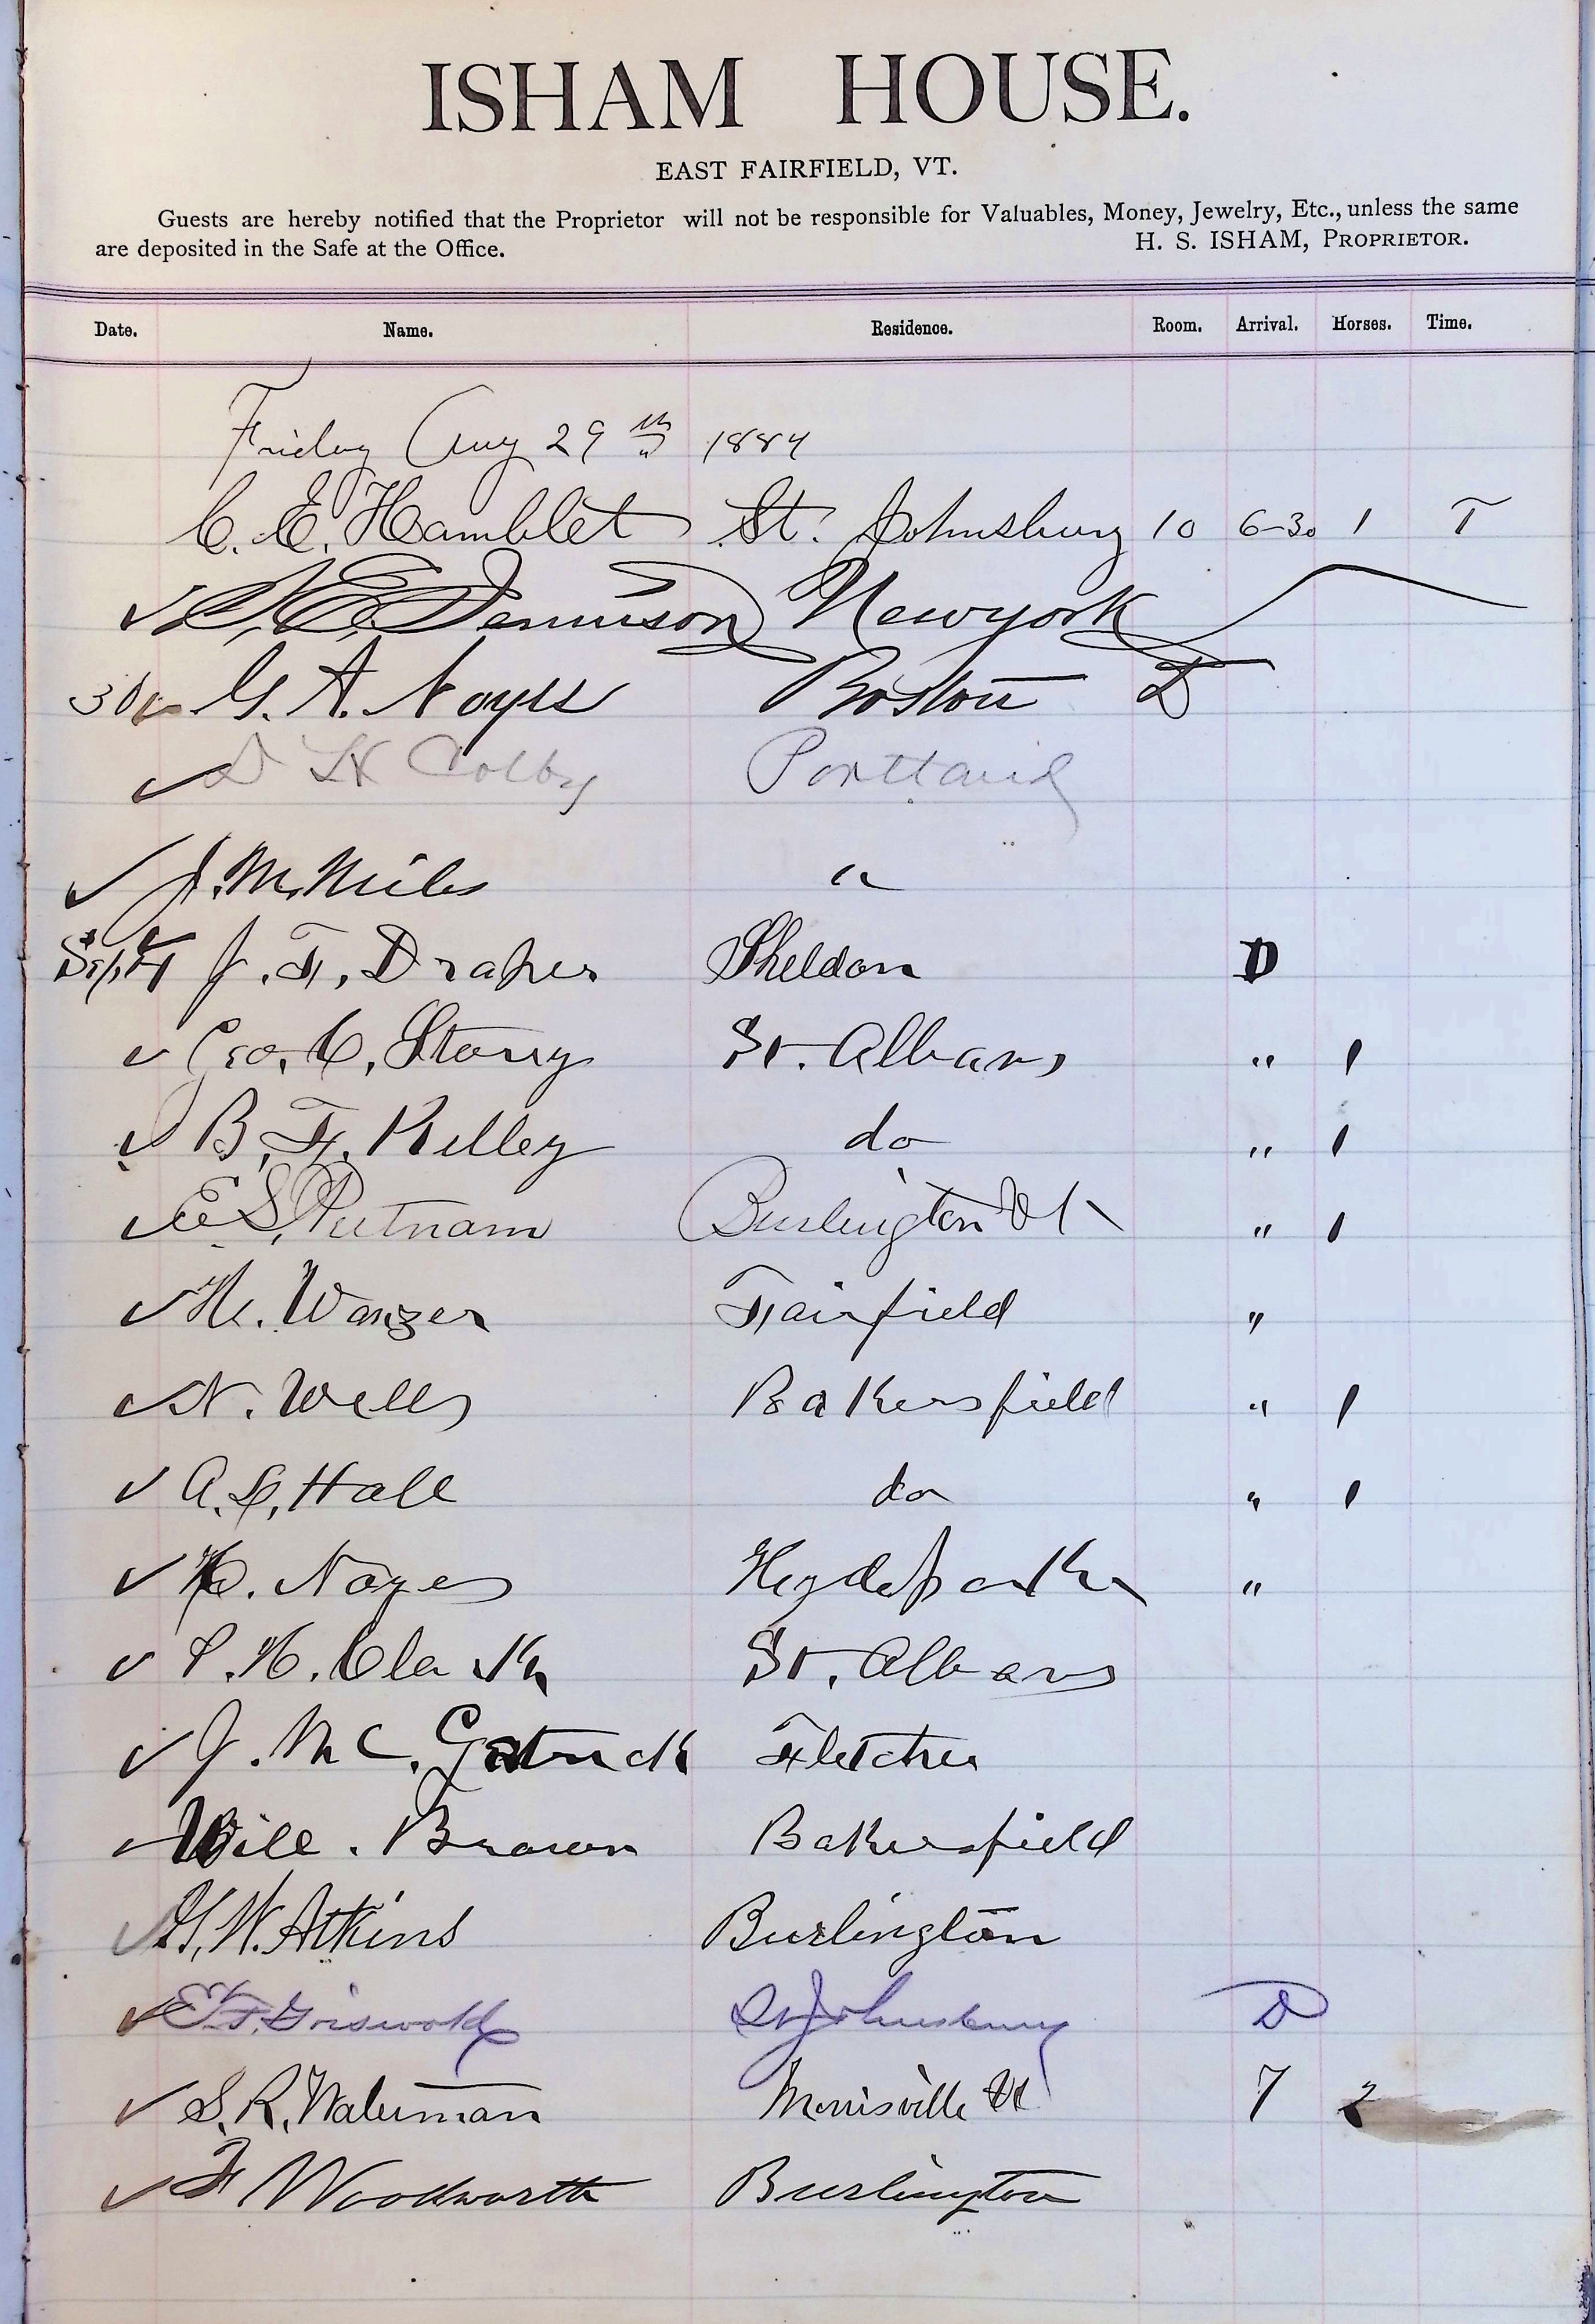 ISHAM HOUSE.
EAST FAIRFIELD, VT.
Guests are hereby notified that the Proprietor will not be responsible for Valuables, Money, Jewelry, Etc., unless the same
are deposited in the Safe at the Office. H. S. ISHAM, PROPRIETOR.
Date. Name. Residence. Room. Arrival. Horses. Time.
Friday Aug 29th 1884
C. E. Hamblet St. Johnsbury 10 6-30 1 T
E. Dennison Newyork
30 G. A. Noyes Boston D
D H Colby Portland
J. M. Niles "
Sept J. F. Draper Sheldon D
Geo. C. Story St. Albans " 1
B. F. Kelley do " 1
E S. Putnam Burlington Vt " 1
H. Wanzer Fairfield "
N. Wells Bakersfield " 1
A. L. Hall do " 1
Noyes Hydepark "
P. H. Clark St. Albans
J. Mc. Getrick Fletcher
Will. Brown Bakersfield
W. Atkins Burlington
E. F. Griswold St Johnsbury D
S. R. Waterman Morrisville Vt 7 2
F Woodworth Burlington